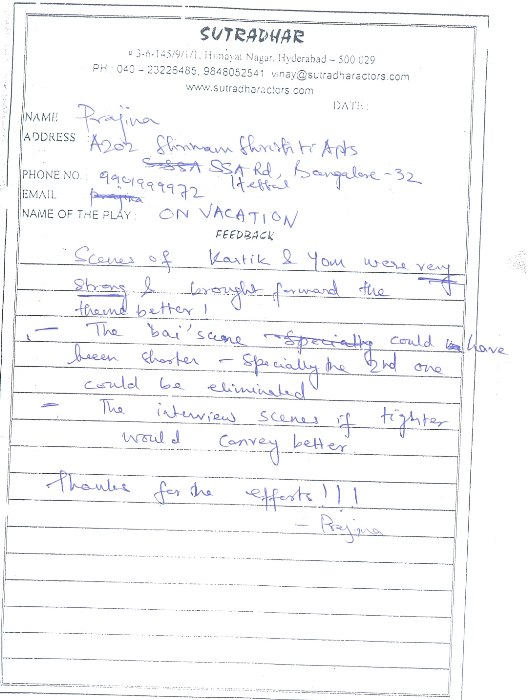 SUTRADHAR
# 3-6-145/9/1/1, Himayat Nagar, Hyderabad – 500 029
PH : 040 – 23226485, 9848052541 vinay@sutradharactors.com
www.sutradharactors.com
DATE:
NAME Prajina
ADDRESS A202 Shriram Shrishti Apts
SSA Rd, Bangalore -32
PHONE NO. : 9901999972 Hebbal
EMAIL
NAME OF THE PLAY : ON VACATION
FEEDBACK
Scenes of Kartik & You were very
strong & brought forward the
theme better !
– The 'bai' scene Specially could have
been shorter – Specially the 2nd one
could be eliminated
– The interview scenes if tighter
would convey better
Thanks for the efforts !!!
– Prajina